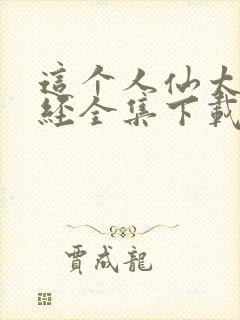 這个人仙太
經全集下載
賈成龍